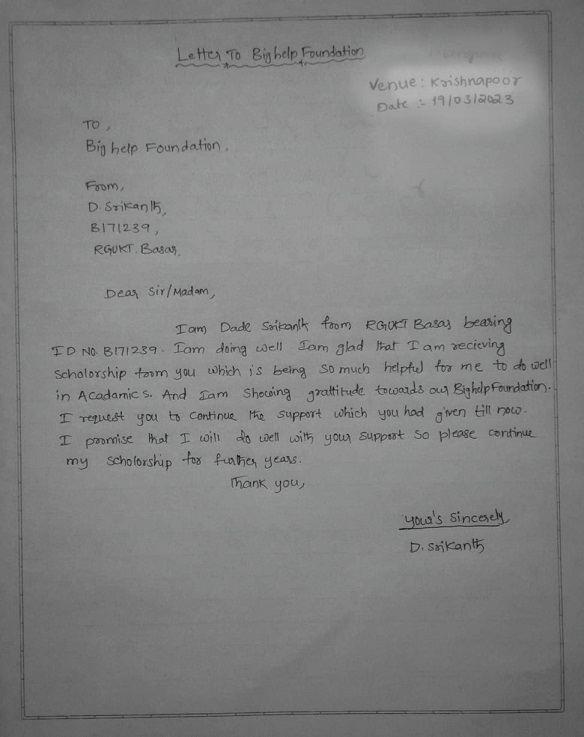 Letter To Bighelp Foundation
Venue : Krishnapoor
Date : 19/03/2023
TO,
Big help Foundation.
From,
D. Srikanth,
B171239,
RGUKT Basar,
Dear Sir/Madam,
Iam Dade Srikanth from RGUKT Basar bearing
ID NO. B171239. Iam doing well Iam glad that I am recieving
Scholorship from you which is being so much helpful for me to do well
in Acadamics. And Iam Showing grattitude towards our Bighelp Foundation.
I request you to continue the support which you had given till now.
I promise that I will do well with your support so please continue
my scholorship for further years.
Thank you,
Your's Sincerely,
D. Srikanth